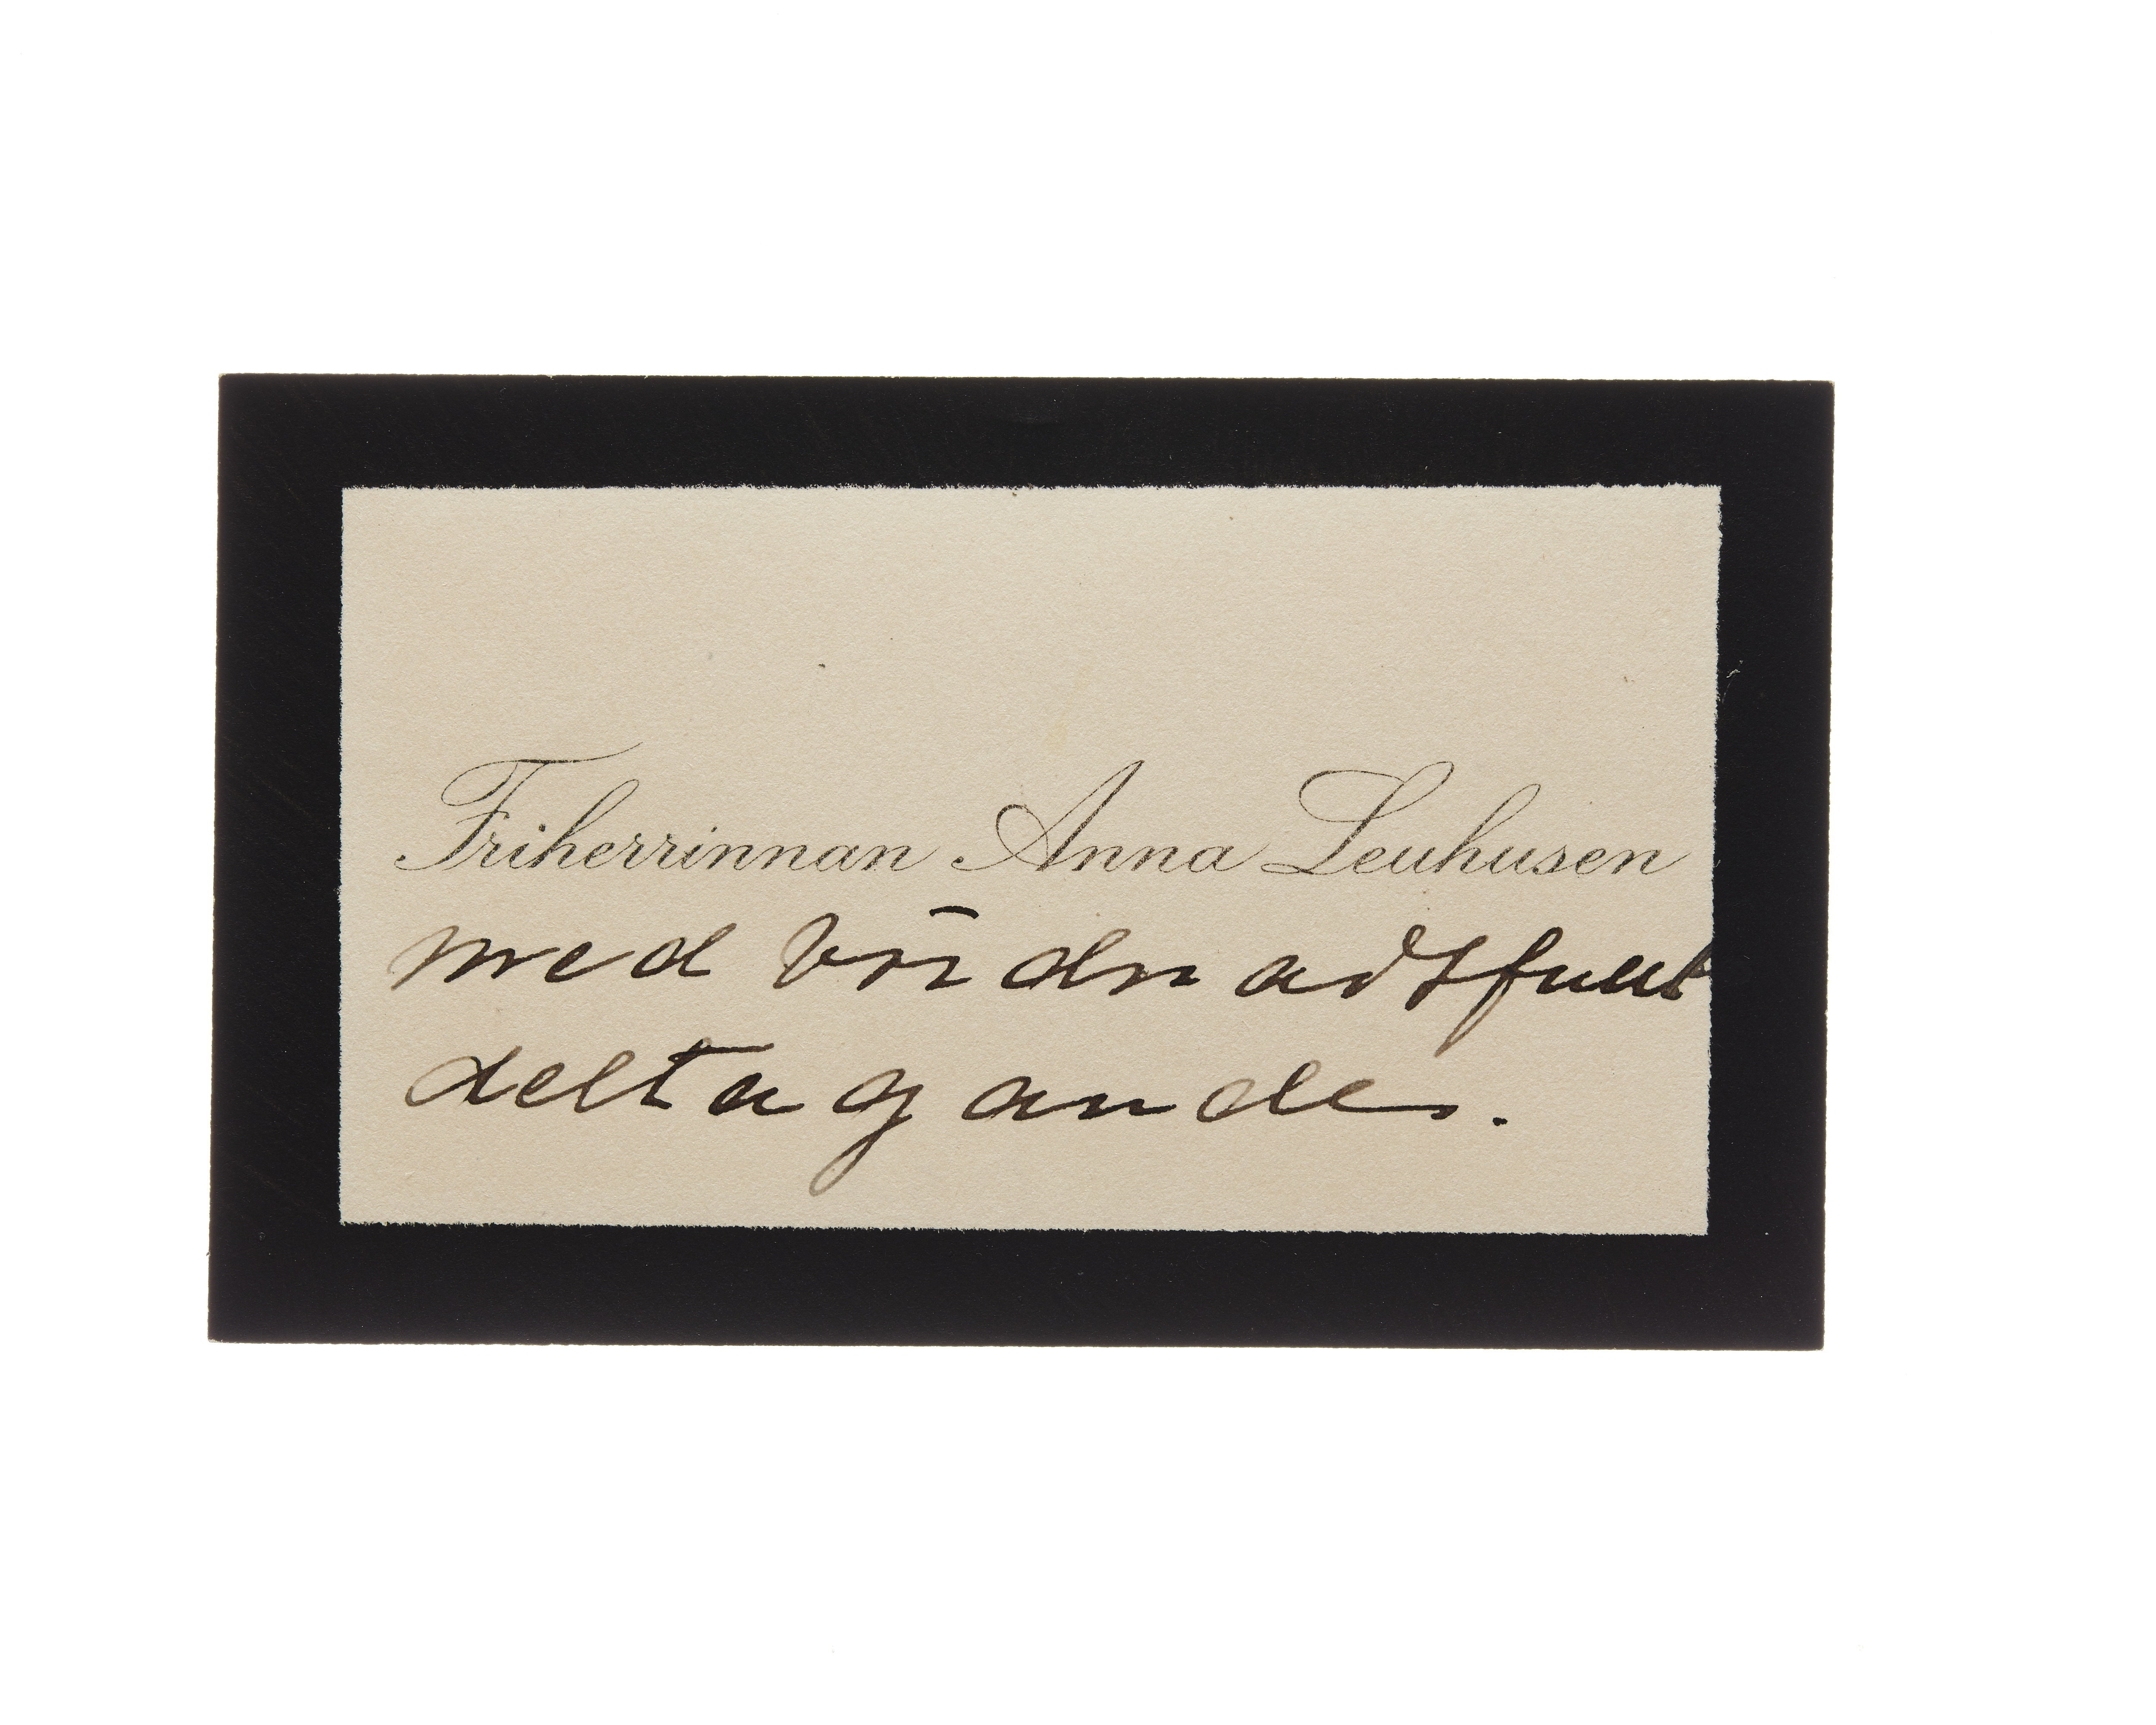 Friherrinnan Anna Leuhusen
med vördnadsfullt
deltagande.